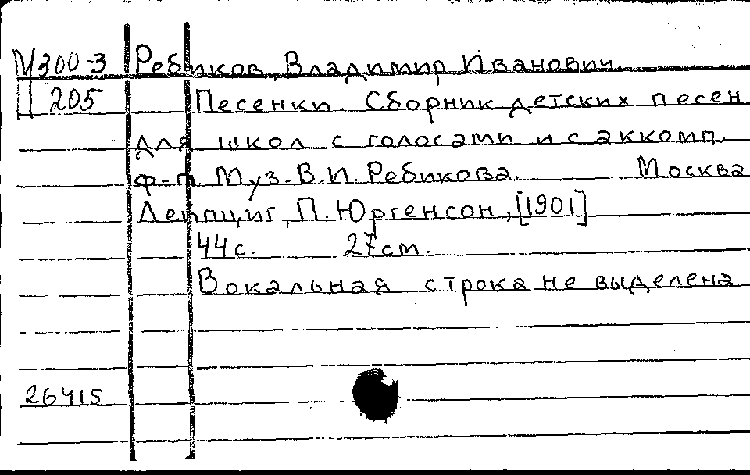 М300-3 Ребиков, Владимир Иванович.
П 205 Песенки. Сборник детских песен
для школ с голосами и с аккомп.
ф-п. Муз. В.И. Ребикова. Москва
Лейпциг, П. Юргенсон, [1901]
44с. 27см.
Вокальная строка не выделена
26415